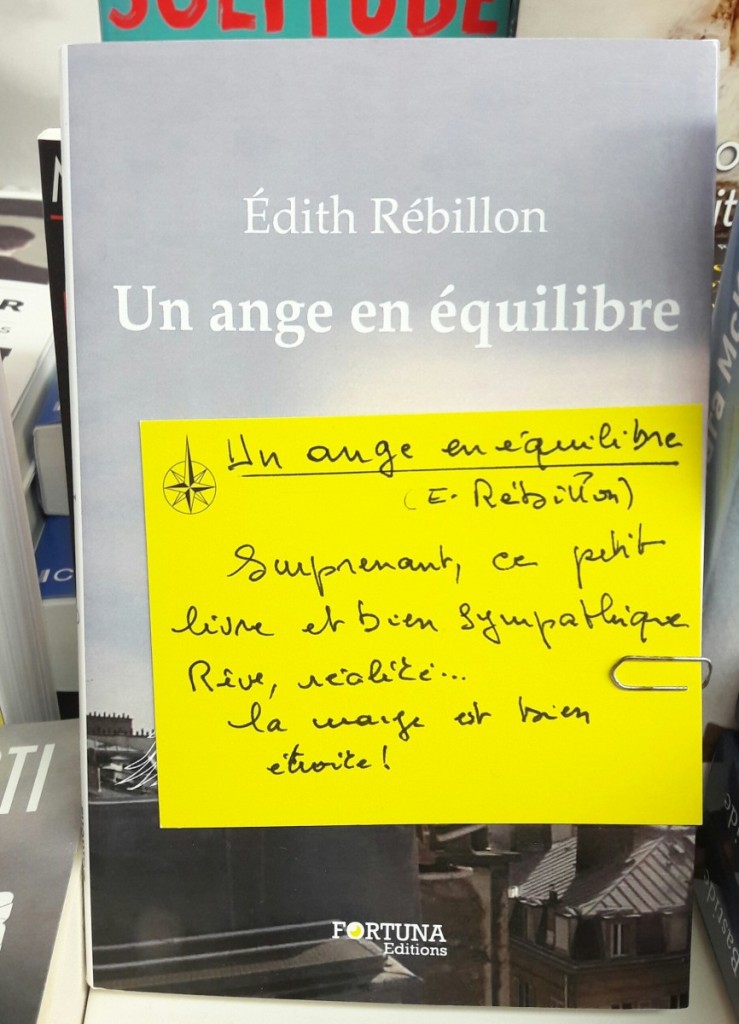 SOLITUDE
Édith Rébillon
Un ange en équilibre
Un ange en équilibre
(E. Rébillon)
Surprenant, ce petit
livre et bien sympathique
Rêve, réalité...
la marge est bien
étroite!
FORTUNA
Editions
Bastide